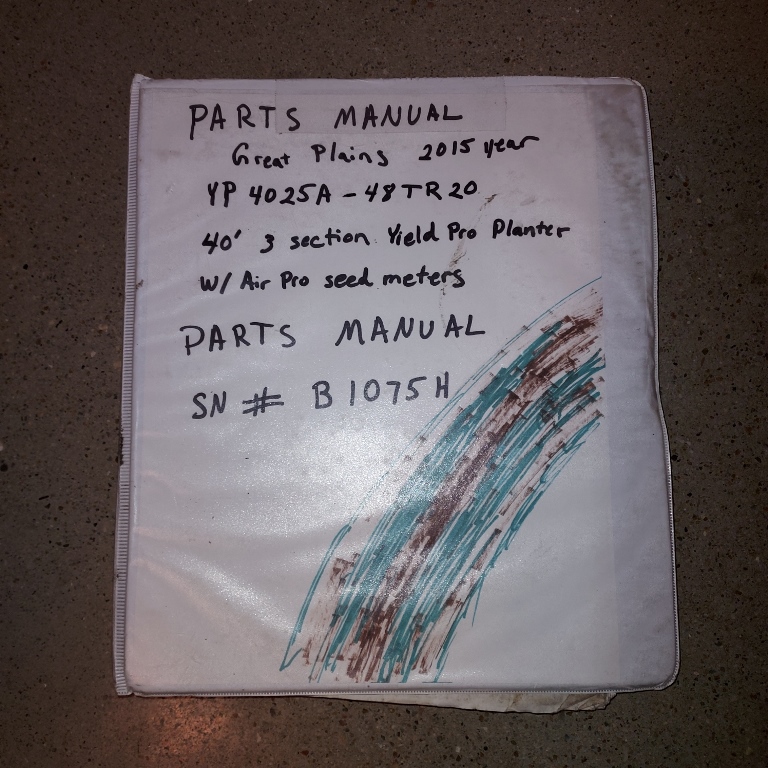 PARTS MANUAL
Great Plains 2015 year
YP 4025A - 48TR20
40' 3 section Yield Pro Planter
W/ Air Pro seed meters
PARTS MANUAL
SN # B1075H